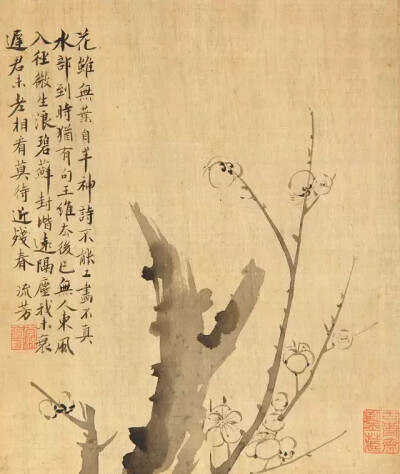 花雖無葉自丰神詩不能工畫不真
水部到時猶有句王維去後已無人東風
入微生浪碧蘚封堦遠隔塵我未衰
遲君未老相看莫待近殘春 流芳